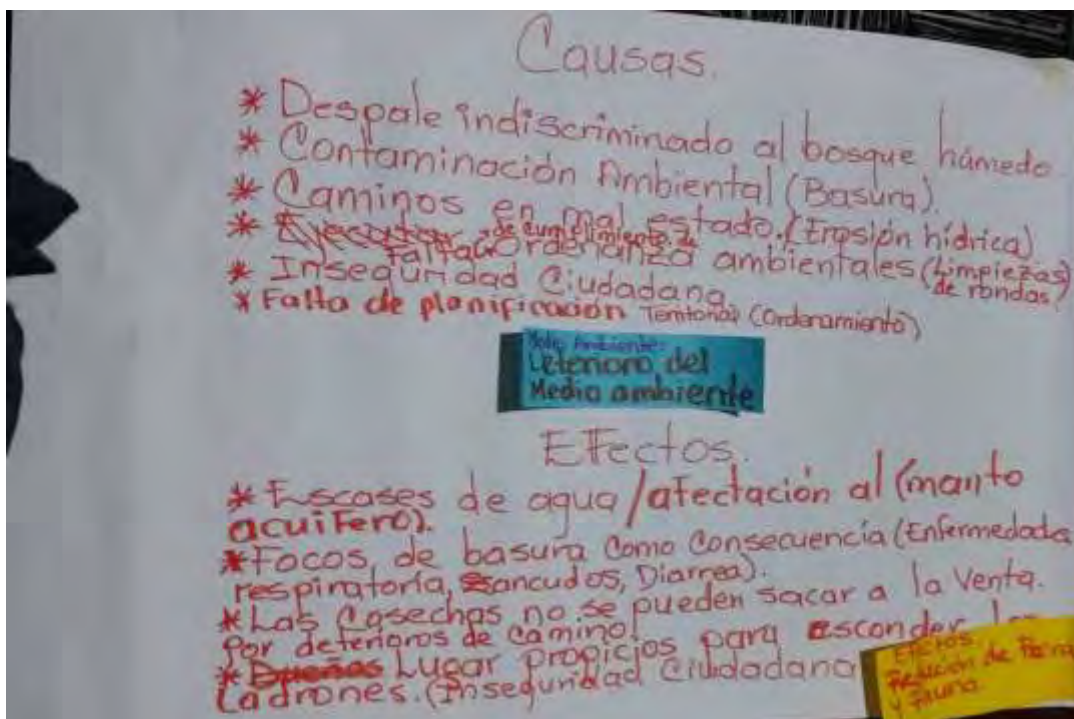 Causas.
* Despale indiscriminado al bosque húmedo
* Contaminación Ambiental (Basura).
* Caminos en mal estado. (Erosión hídrica)
* falta de cumplimiento de Ordenanza ambientales (Limpiezas de rondas)
* Inseguridad Ciudadana
* Falta de planificación Territorial (Ordenamiento)
Medio Ambiente:
Deterioro del
Medio ambiente
Efectos.
* Escases de agua / afectación al (manto
acuifero).
* Focos de basura como Consecuencia (Enfermedada
respiratoria, zancudos, Diarrea).
* Las Cosechas no se pueden sacar a la Venta.
Por deterioros de camino.
* Lugar propicios para esconder los
Ladrones. (Inseguridad Ciudadana
Efectos.
Reducion de
y Fauna.